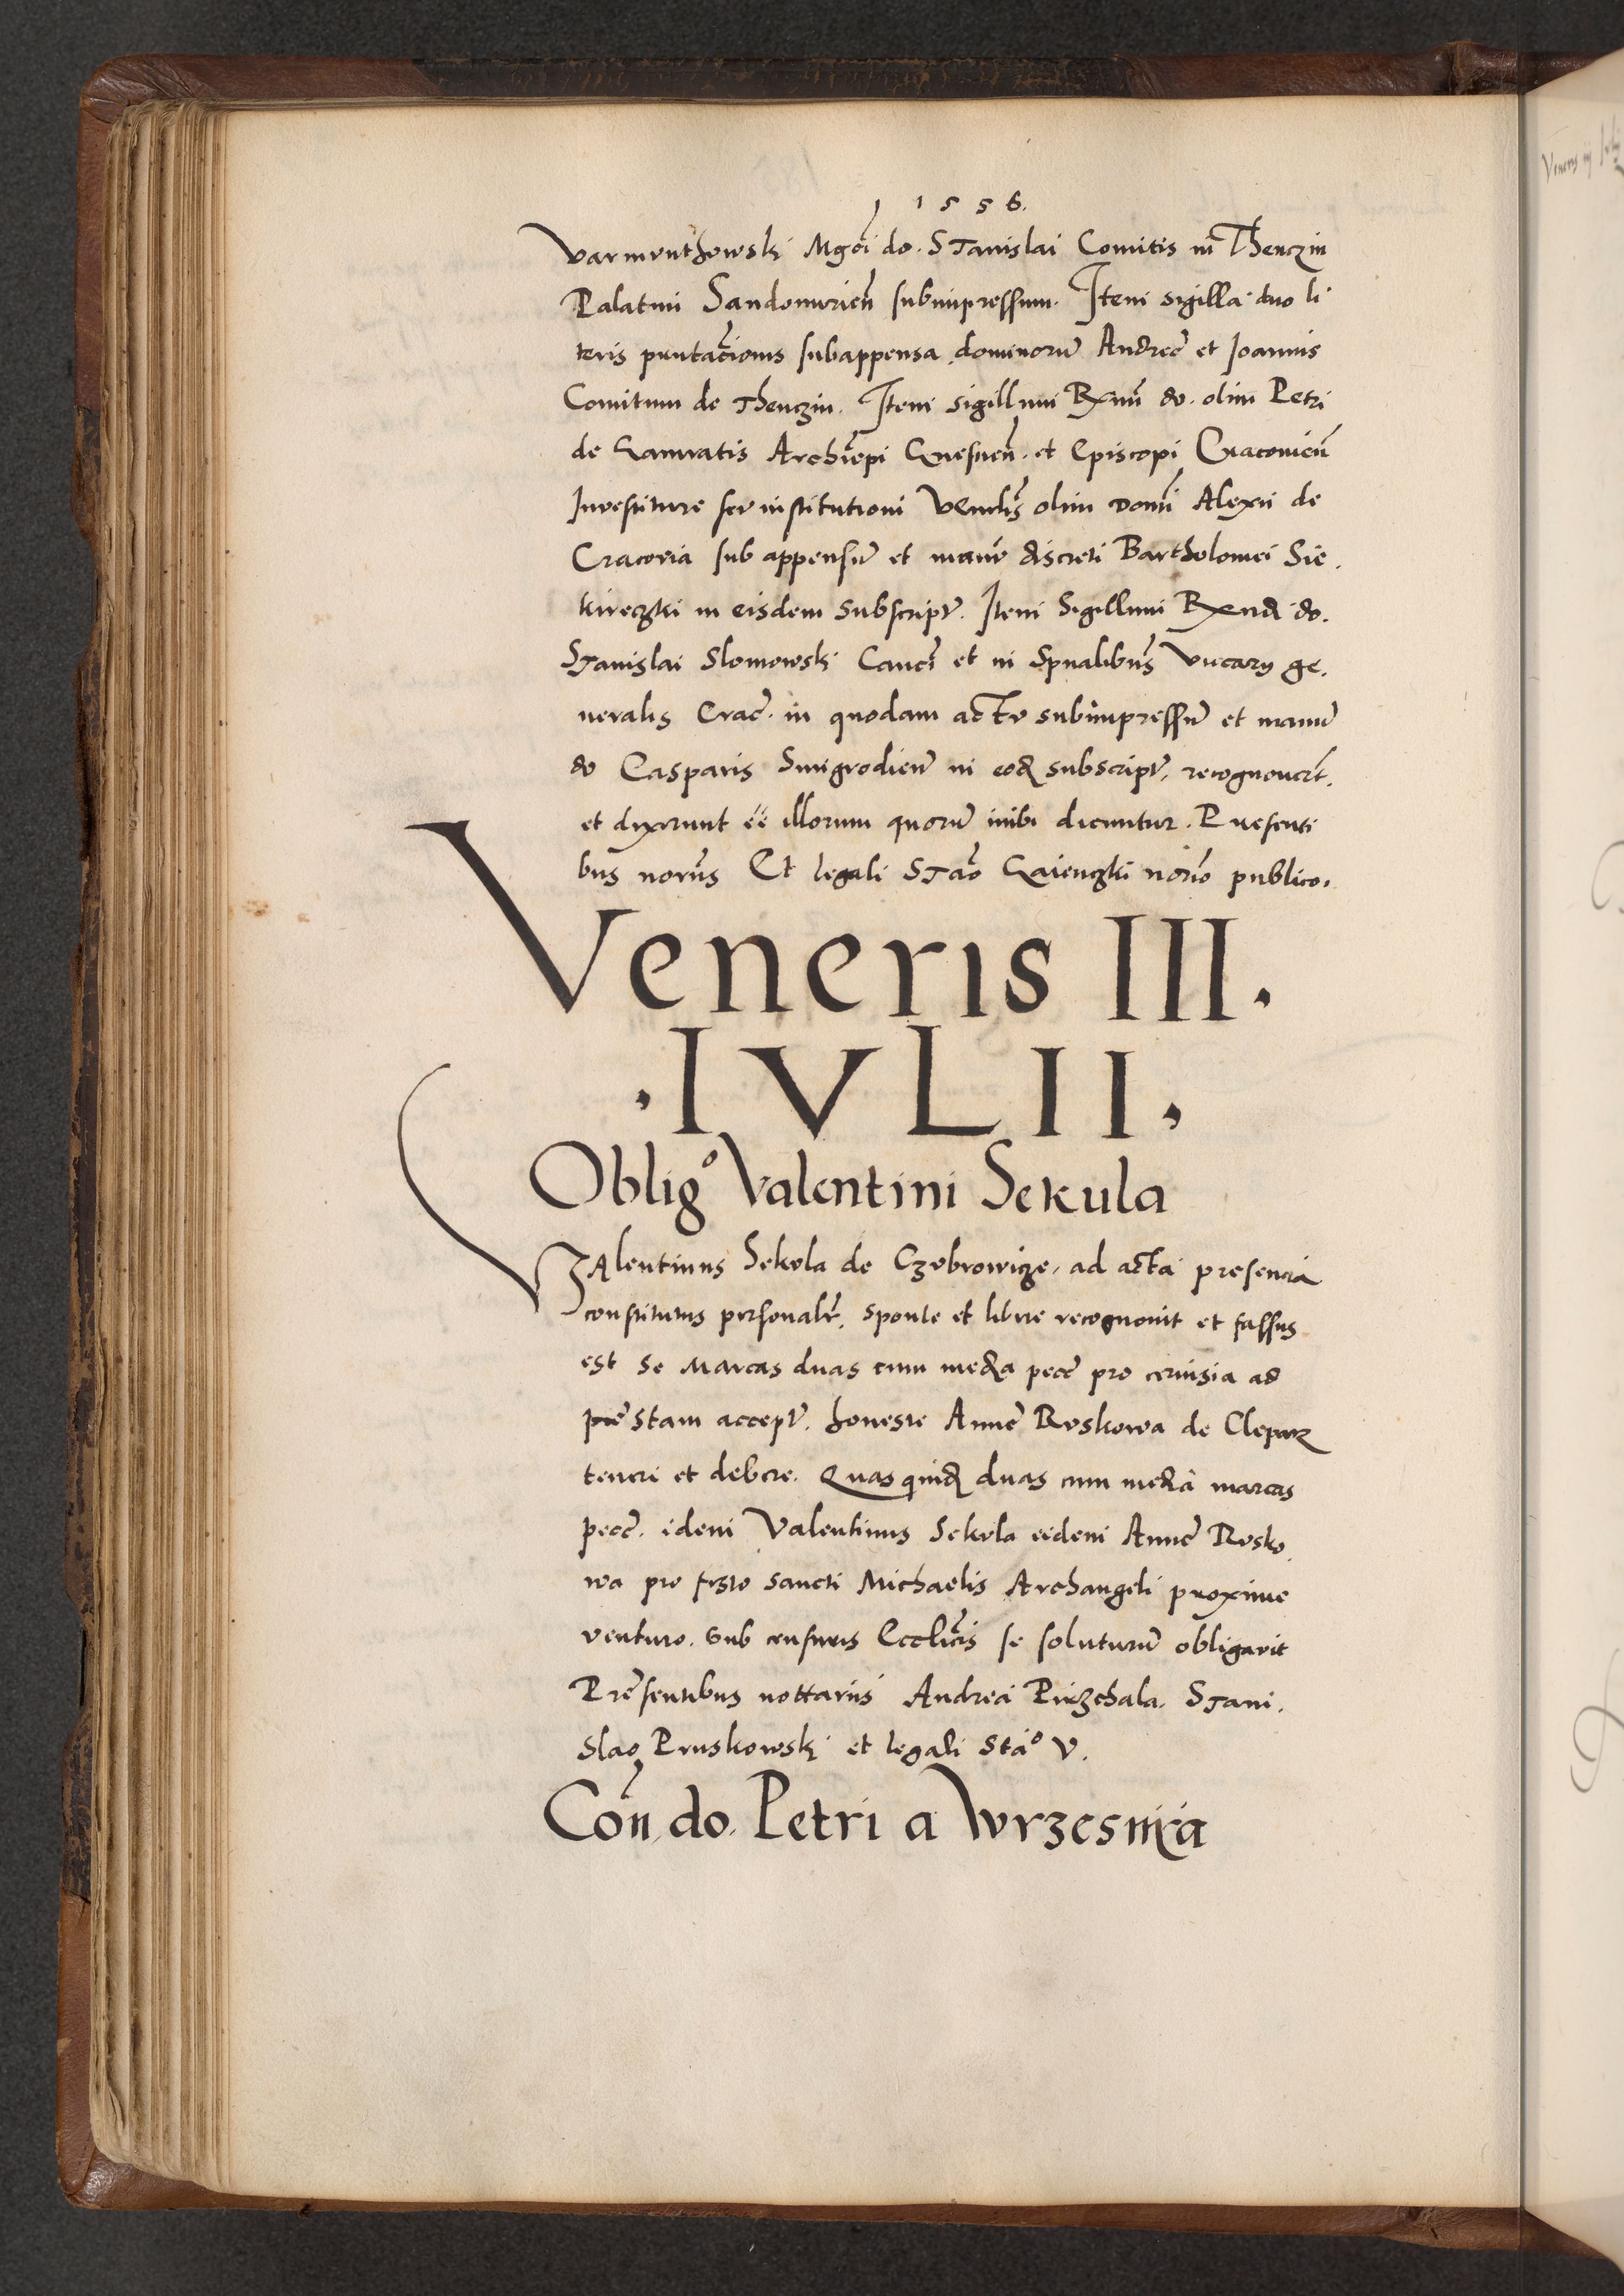 1556.
Varmunthowski Mgci do. Stanislai Comitis in Thenczin
Palatini Sandomirien̄ subimpressum. Item sigilla duo li
teris pnntac̄ionis subappensa dominorū Andreē et Joannis
Comitum de Thenczin. Item sigillum Rx̄mi do. olim Petri
de Gamratis Archiēpi Gnesnen̄. et Episcopi Cracovien̄
Investiture seu institutioni Vēn̄lis olim Domī Alexii de
Cracovia sub appensū et manū discreti Bartholomei Sie
kireczki in eisdem subscript̄. Item Sigillum Rxnd do.
Stanislai Slomowski Canci et in Spūalibus Vicarij ge.
neralis Crac̄. in quodam acto subimpressū et manū
do Casparis Smigrodien̄ in eod subscript̄, recognoverūt.
et dixerunt eē illorum quorū inibi dicuntur. Presenti
bus noriis Et legali Stāo Gaienczki norio publico.
Veneris III.
.IVLII.
Oblig° Valentini Sekula
VAlentinus Sekula de Czebrowicze, ad acta presencia
constitutus personalr̄. sponte et libere recognovit et fassus
est se marcas duas cum media pecē pro cervisia ad
pre stam accept̄. honeste Anne Ruskowa de Clepar
teneri et debere. Quas quid duas cum media marcas
pecē. idem Valentinus Sekula eidem Anne Rusko
wa pro festo sancti Michaelis Archangeli proxime
venturo. sub censuris Ecclicis se soluturū obligavit
Prēsentibus nottariis Andrea Piczchala. Stani.
slao Pruskowski et legali Sta° V.
Con̄ do. Petri a Wrzesnia